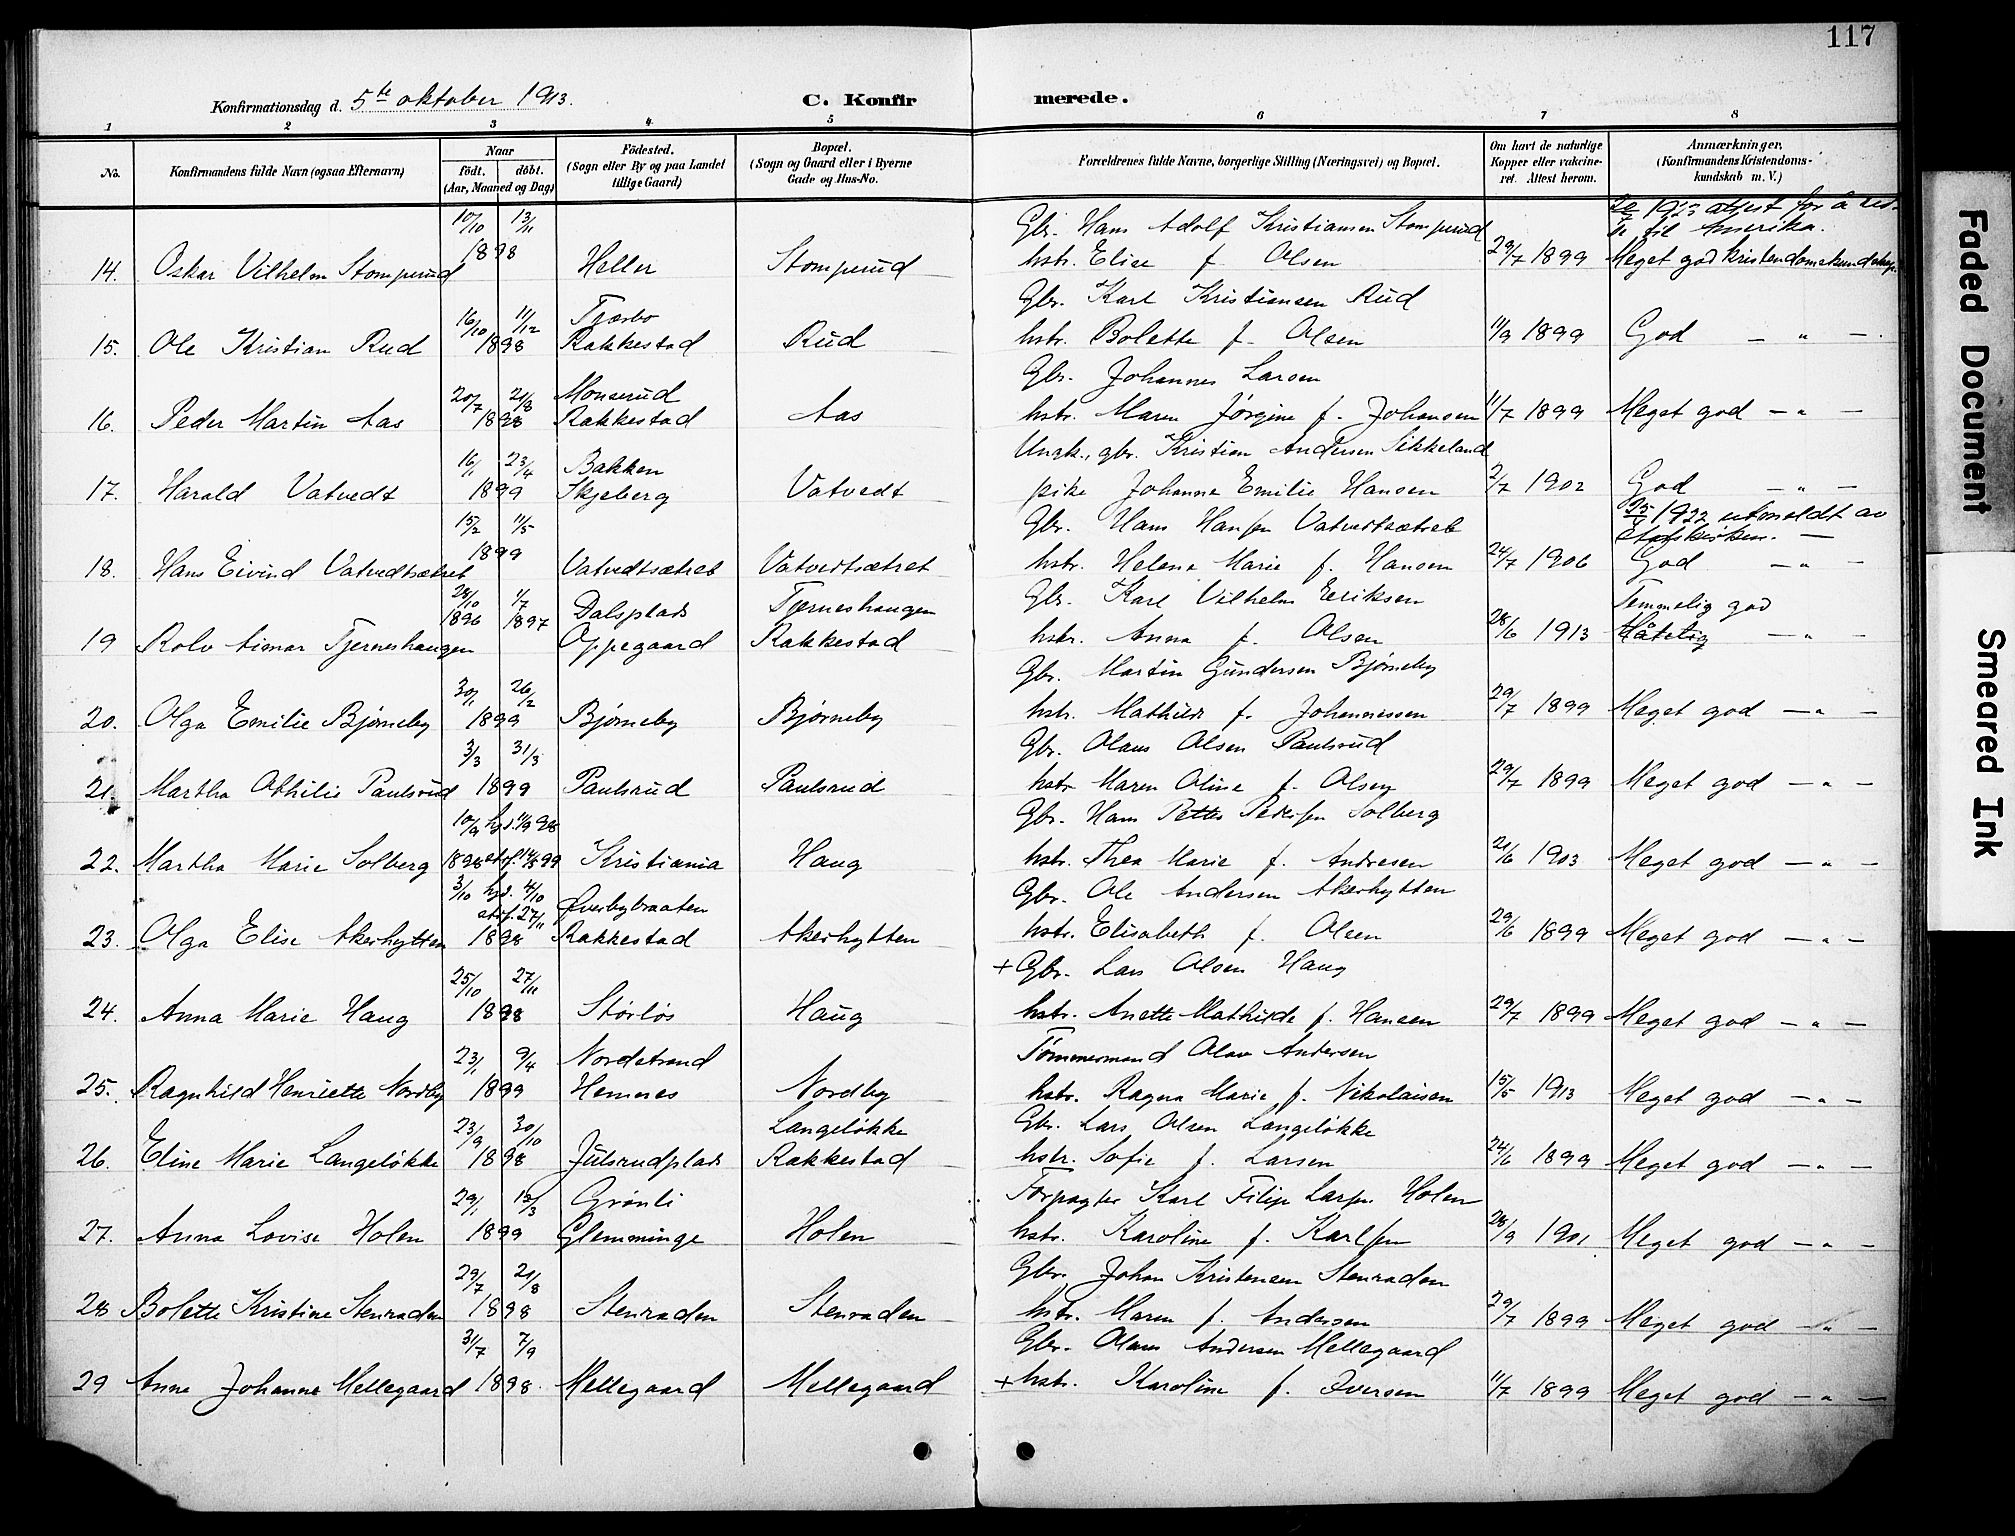 117
Konfirmationsdag d. 5te oktober 1913.
C. Konfirmerede.
1 2 3 4 5 6 7 8
No.
Konfirmandens fulde Navn (ogsaa Efternavn)
Naar
födt. döbt.
(Aar, Maaned og Dag)
Födested.
(Sogn eller By og paa Landet
tillige Gaard)
Bopæl.
(Sogn og Gaard eller i Byerne
Gade og Hus-No.
Forældrenes fulde Navne, borgerlige Stilling (Næringsvei) og Bopæl.
Om havt de naturlige
Kopper eller vakcine-
ret. Attest herom.
Anmærkninger,
(Konfirmandens Kristendoms-
kundskab m. V.)
10/10 13/11 Gbr. Hans Adolf Kristiansen Stomperud 1923 attest for å
til Amerika.
14. Oskar Vilhelm Stomperud 1898 Heller Stomperud hstr. Elise f. Olsen 29/7 1899 Meget god Kristendomskundskap.
16/10 11/12 Tjærbo Gbr. Karl Kristiansen Rud
15. Ole Kristian Rud 1898 Rakkestad Rud hstr. Bolette f. Olsen 11/9 1899 God — " —
20/7 21/8 Monserud Gbr. Johannes Larsen
16. Peder Martin Aas 1898 Rakkestad Aas hstr. Maren Jørgine f. Johansen 11/7 1899 Meget god — " —
16/1 23/4 Bakken Ungk., gbr. Kristian Andersen Sikkeland
17. Harald Vatvedt 1899 Skjeberg Vatvedt pike Johanne Emilie Hansen 2/7 1902 God — " —
15/2 11/5 Gbr. Hans Hansen Vatvedtsætret 1922 utmeldt av
Statskirken. —
18. Hans Eivind Vatvedtsætret 1899 Vatvedtsætret Vatvedtsætret hstr. Helena Marie f. Hansen 24/7 1906 God — " —
28/10 1896 1/7 1897 Dalsplads Tjerneshaugen Gbr. Karl Vilhelm Eriksen Temmelig god
19 Rolv Aimar Tjerneshaugen Oppegaard Rakkestad hstr. Anna f. Olsen 28/6 1913 Måtelig — " —
30/1 26/2 Gbr. Martin Gundersen Bjørneby
20. Olga Emilie Bjørneby 1899 Bjørneby Bjørneby hstr. Mathilde f. Johannessen 29/7 1899 Meget god — " —
3/3 31/3 Gbr. Olaus Olsen Paulsrud
21. Martha Othilie Paulsrud 1899 Paulsrud Paulsrud hstr. Maren Oline f. Olsen 29/7 1899 Meget god — " —
10/9 hjd. 11/9 98 Gbr. Hans Petter Pedersen Solberg
22. Martha Marie Solberg 1898 Kristiania Haug hstr. Thea Marie f. Andresen 21/6 1903 Meget god — " —
3/10 hjd. 4/10 Gbr. Ole Andersen Akerhytten
27/11 Øverbybraaten
23. Olga Elise Akerhytten 1898 Rakkestad Akerhytten hstr. Elisabeth f. Olsen 29/6 1899 Meget god — " —
25/10 27/11 + Gbr. Lars Olsen Haug
24. Anna Marie Haug 1898 Størløs Haug hstr. Anette Mathilde f. Hansen 29/7 1899 Meget god — " —
23/1 9/4 Nordstrand Tømmermand Olav Andersen
25. Ragnhild Henriette Nordby 1899 Hemnes Nordby hstr. Ragna Marie f. Nikolaisen 15/5 1913 Meget god — " —
23/9 30/10 Langeløkke Gbr. Lars Olsen Langeløkke
26. Eline Marie Langeløkke 1898 Julsrudplads Rakkestad hstr. Sofie f. Larsen 24/6 1899 Meget god — " —
29/1 12/3 Grønli Forpagter Karl Filip Larsen Holen
27. Anna Lovise Holen 1899 Glemminge Holen hstr. Karoline f. Karlsen 28/9 1901 Meget god — " —
29/7 21/8 Gbr. Johan Kristensen Stenraden
28 Bolette Kristine Stenraden 1898 Stenraden Stenraden hstr. Maren f. Andersen 29/7 1899 Meget god — " —
31/7 7/9 Gbr. Olaus Andersen Mellegaard
29 Anna Johanne Mellegaard 1898. Mellegaard Mellegaard + hstr. Karoline f. Iversen 11/7 1899 Meget god — " —
Faded Document
Smeared Ink